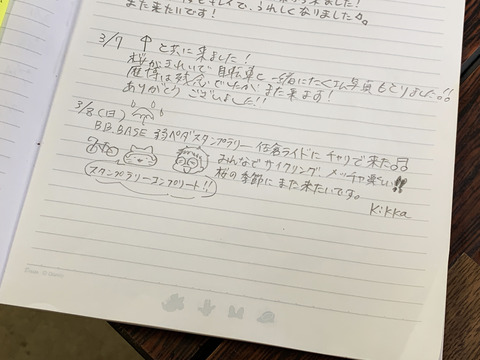 また来たいです!
キレイで、うれしくなりました
3/7 と共に来ました!
桜がきれいで自転車と一緒にたくさん写真もとりました!!
は残念でしたがまた来ます!
ありがとうございました!!
3/8(日)
B.B.BASE ペダスタンプラリー 佐倉ライドにチャリで来た
みんなでサイクリング メッチャ楽しい!!
桜の季節にまた来たいです。
スタンプラリーコンプリート!!
Kikka